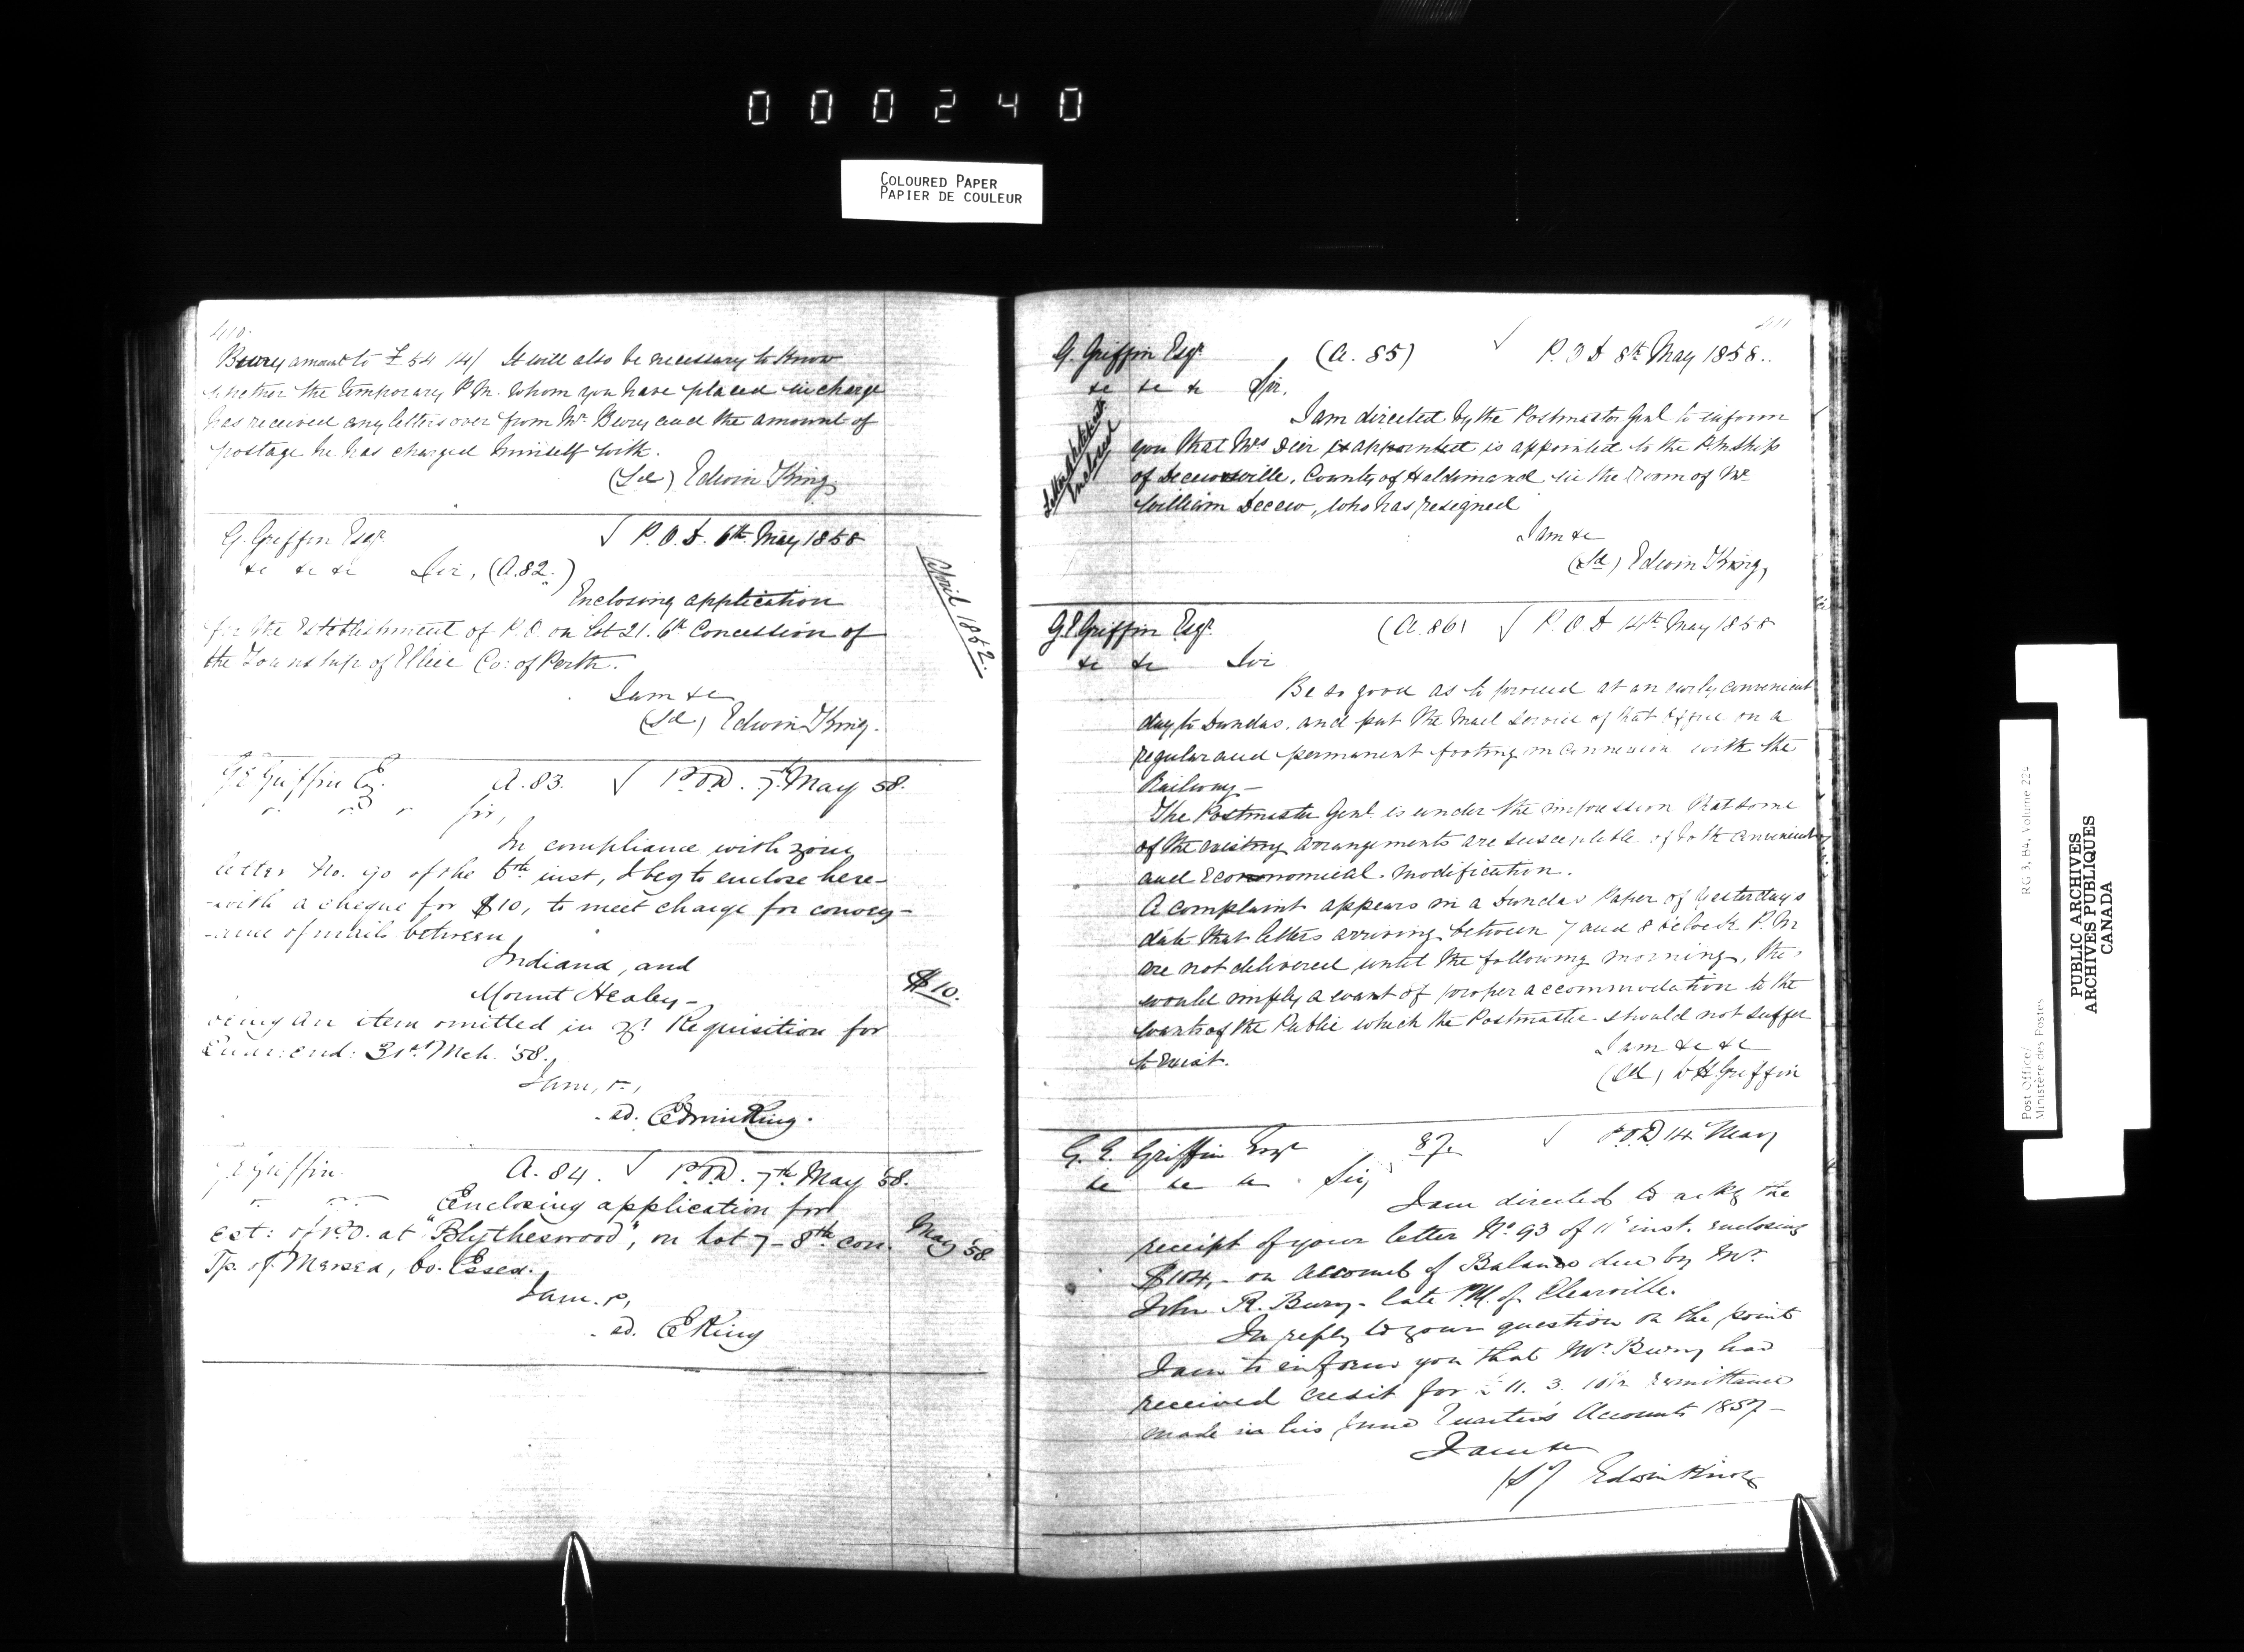 000240
COLOURED PAPER
PAPIER DE COULEUR
410.
Bewry amount to £54 14/ It will also be necessary to know
whether the temporary P.M. whom you have placed in charge
has received any letters over from Mr. Bewry and the amount of
postage he has charged himself with.
(Sd) Edwin King.
G. Griffin Esqr. √ P.O.D. 6th May 1858
&c &c &c Sir, (A.82.)
Enclosing application
for the Establishment of P.O. on Lot 21. 6th Concession of
the Township of Ellice Co: of Perth.
I am &c
(Sd) Edwin King.
April 1862.
G E Griffin Esq. A.83. √ P.O.D. 7th May 58.
" " " Sir,
In compliance with your
letter No. 90 of the 6th inst, I beg to enclose here-
-with a cheque for $10, to meet charge for convey-
-ance of mails between
Indiana, and
Mount Healey-
$10.
being an item omitted in yr. Requisition for
Quar: end: 31st. Mch. '58.
I am, &c,
sd. Edwin King.
G E Griffin. A. 84. √ P.O.D. 7th May '58.
Enclosing application for
est: of P.O. at "Blytheswood", on Lot 7 - 8th con.
May '58
Tp. of Mersea, Co. Essex.
I am. &c,
sd. E King
411
G. Griffin Esqr. (A. 85) √ P.O.D 8th May 1858..
&c &c &c Sir,
Enclosed
I am directed by the Postmaster Genl to inform
you that Mrs is appointed to the PMship
of Decewsville, County of Haldimand in the room of Mr
William Decew, who has resigned
I am &c
(Sd) Edwin King,
G E Griffin Esqr. (A. 86) √ P.O.D 14th May 1858
&c &c Sir
Be so good as to proceed at an early convenient
day to Dundas, and put the Mail Service of that Office on a
regular and permanent footing in connexion with the
Railway -
The Postmaster Genl. is under the impression that some
of the existing arrangements are susceptible of both convenient
and Economical. modification.
A complaint appears in a Dundas Paper of yesterday's
date that letters arriving between 7 and 8 o'clock P.M
are not delivered until the following morning, this
would imply a want of proper accommodation to the
wants of the Public which the Postmaster should not suffer
to exist.
I am &c &c
(Sd) W H Griffin
G. E. Griffin Esqr 87. √ P.O.D 14 May
&c &c &c Sir,
I am directed to ackg the
receipt of your letter No. 93 of 11th inst. enclosing
$104,- on account of Balance due by Mr.
John R. Bury - late P.M. of Clearville.
In reply to your question on the point
I am to inform you that Mr. Bury has
received credit for £11. 3. 10½ remittance
made in his June Quarter's Accounts 1857 -
I am &c
(Sd) Edwin King
Post Office/
Ministère des Postes
RG 3, B4, Volume 224
PUBLIC ARCHIVES
ARCHIVES PUBLIQUES
CANADA